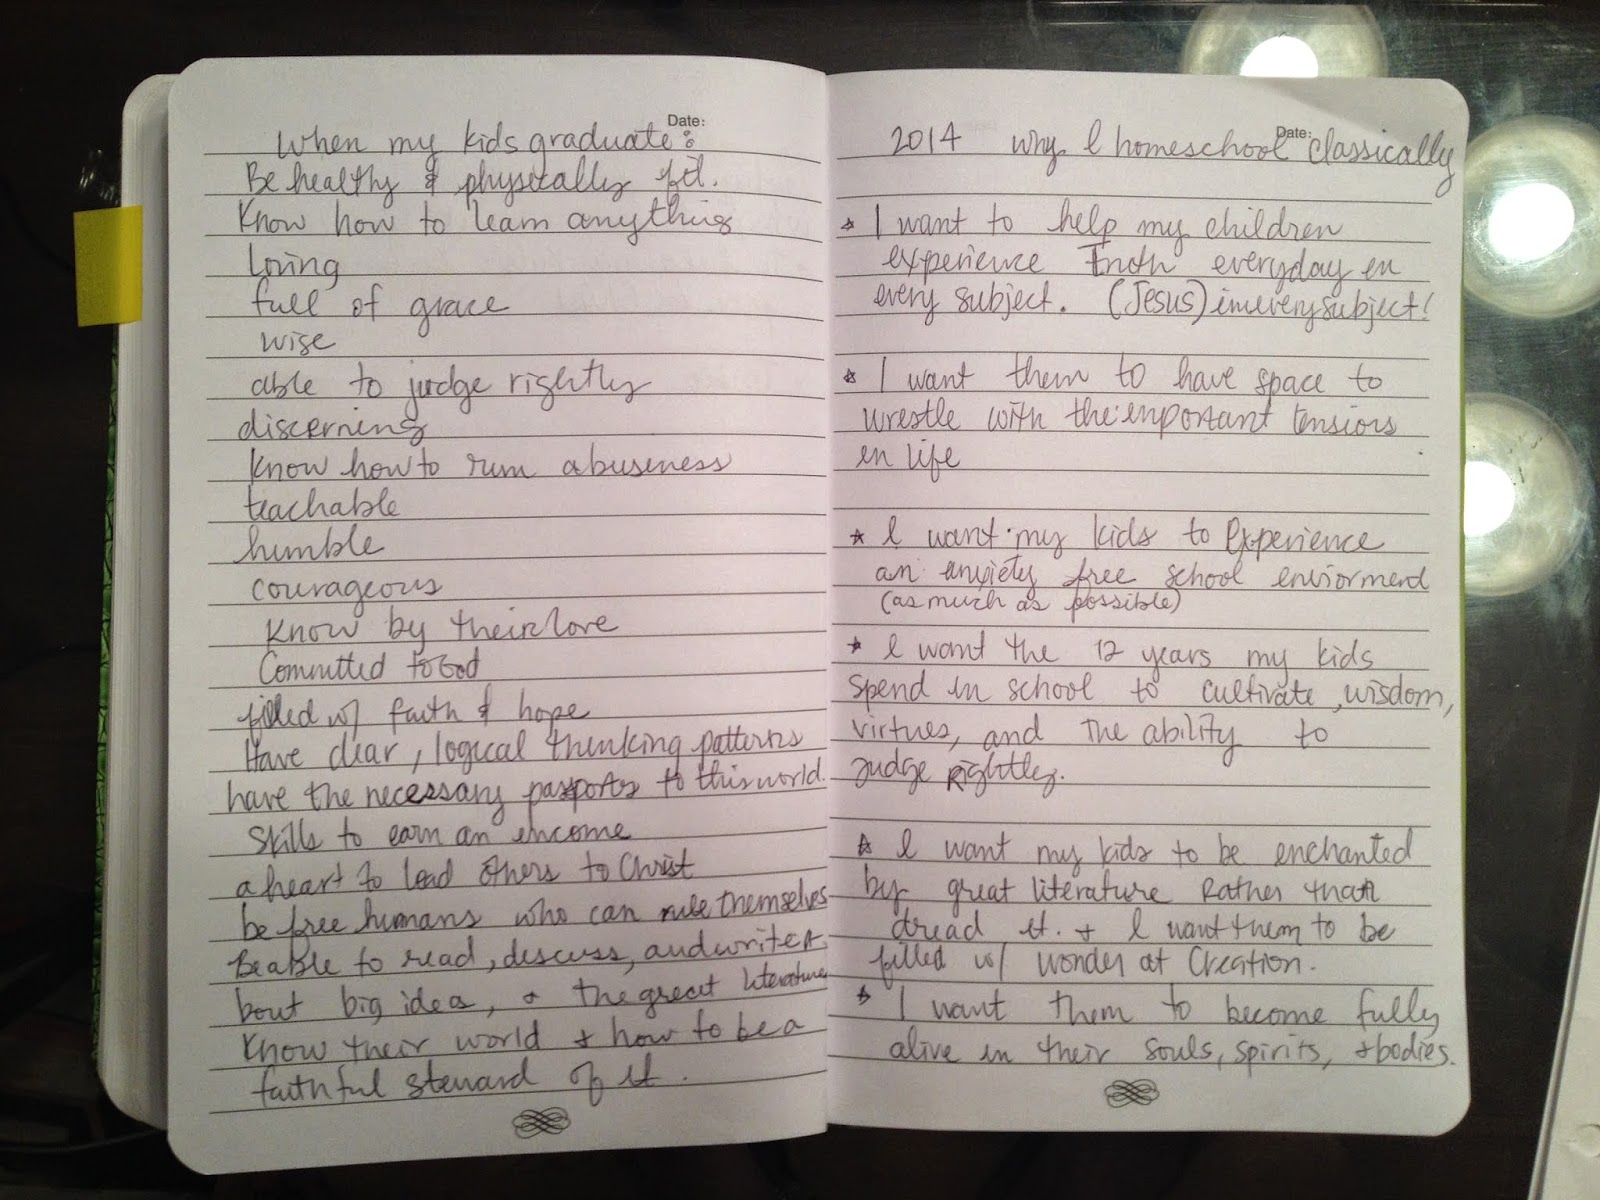 Date:
When my kids graduate:
Be healthy & physically fit.
Know how to learn anything
loving
full of grace
wise
able to judge rightly
discerning
know how to run a business
teachable
humble
courageous
Know by their love
Committed to God
filled w/ faith & hope
Have clear, logical thinking patterns
have the necessary passports to this world.
Skills to earn an income
a heart to lead others to Christ
be free humans who can rule themselves
Be able to read, discuss, and write a
bout big idea, & the great literature
Know their world & how to be a
faithful steward of it.
Date:
2014 Why I homeschool classically
* I want to help my children
experience Truth everyday in
every subject. (Jesus) in every subject!
* I want them to have space to
wrestle with the important tensions
in life
* I want my kids to Experience
an anxiety free school enviorment
(as much as possible)
* I want the 12 years my kids
spend in school to cultivate, wisdom,
virtues, and the ability to
judge Rightly.
* I want my kids to be enchanted
by great literature Rather than
dread it. & I want them to be
filled w/ wonder at Creation.
* I want them to become fully
alive in their souls, spirits, & bodies.